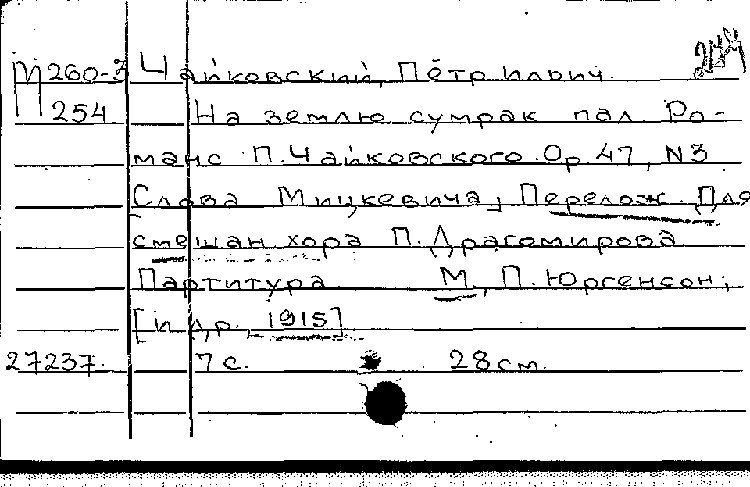 М260-3 Чайковский, Пётр Ильич
254 На землю сумрак пал. Ро-
манс П. Чайковского Ор 47, N3
Слова Мицкевича, Перелож. Для
смешан хора П. Драгомирова
Партитура М., П. Юргенсон;
[и др, 1915]
27237. 7 с. 28 см.